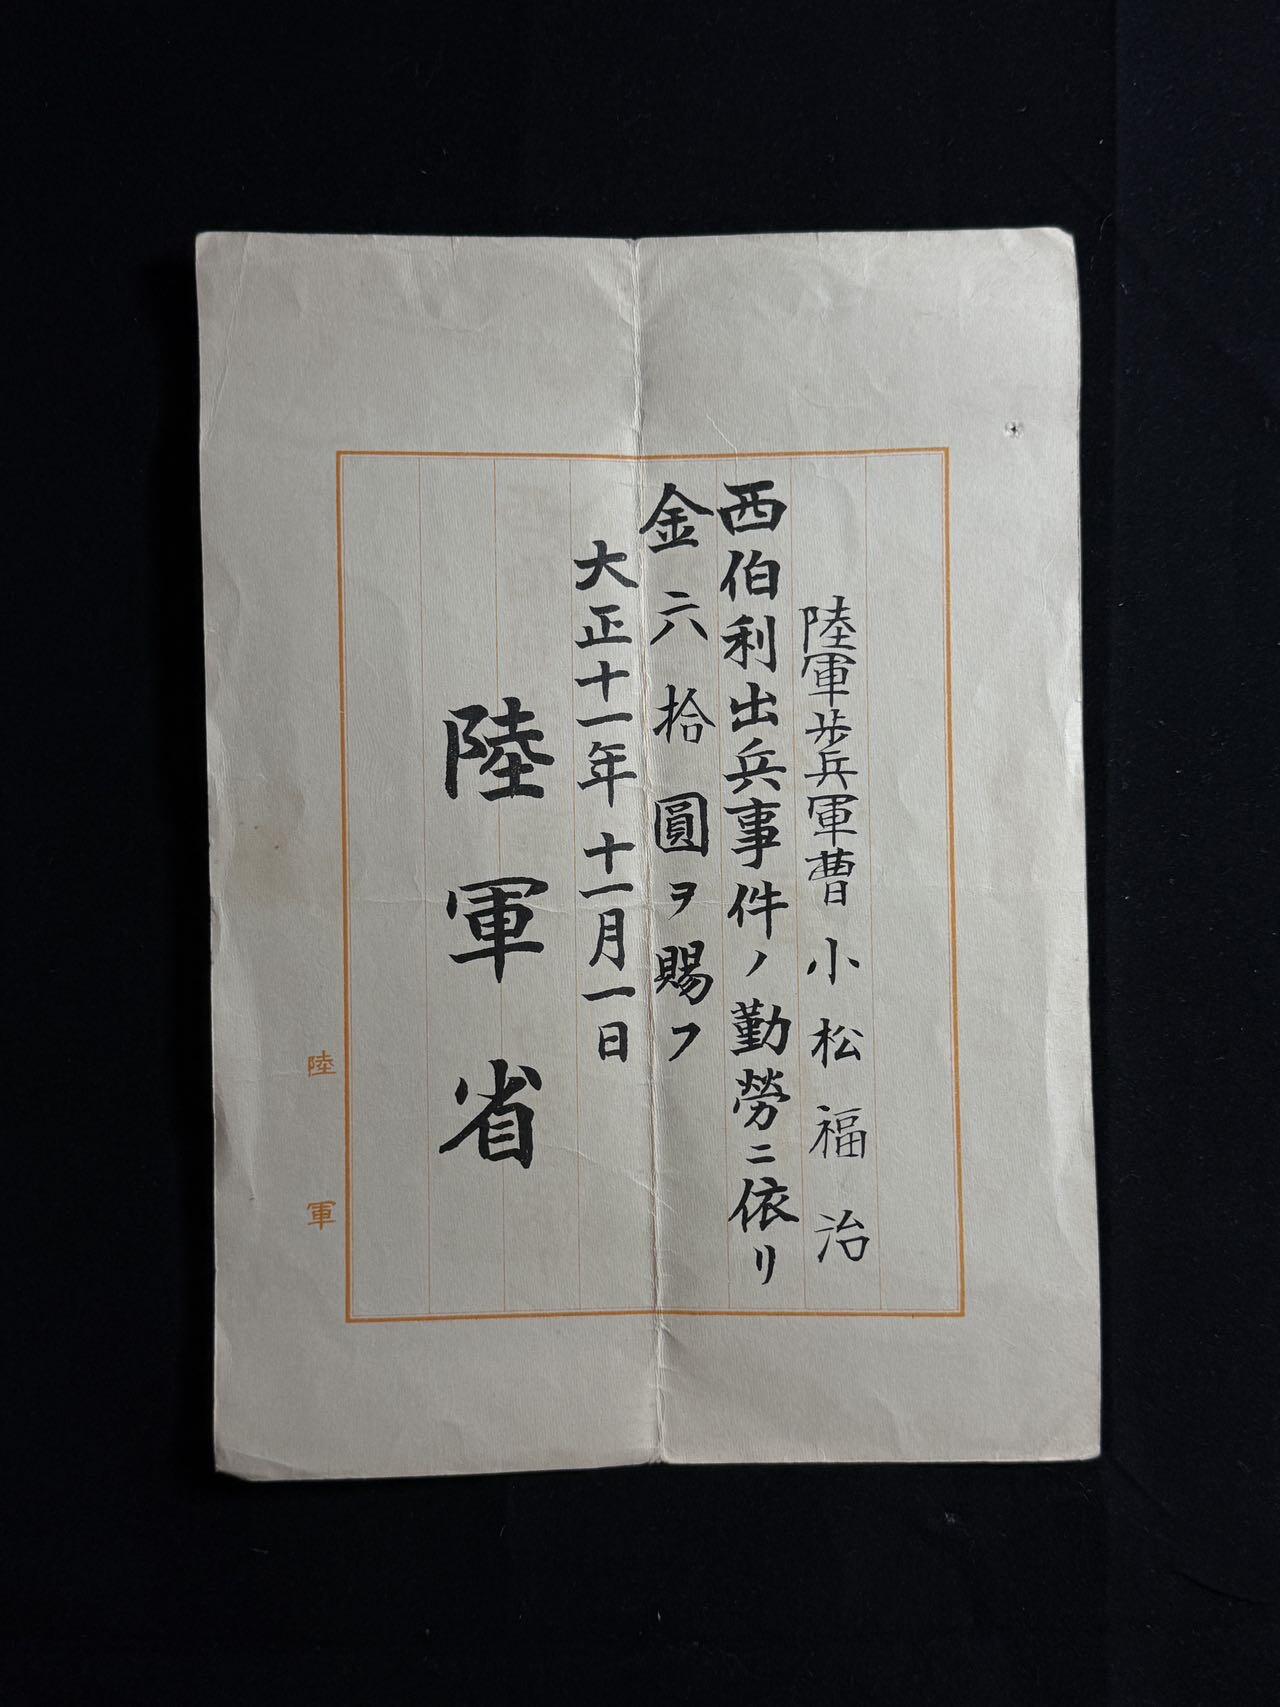 陸軍歩兵軍曹 小松福治
西伯利出兵事件ノ勤勞ニ依リ
金六拾圓ヲ賜フ
大正十一年十一月一日
陸軍省
陸軍